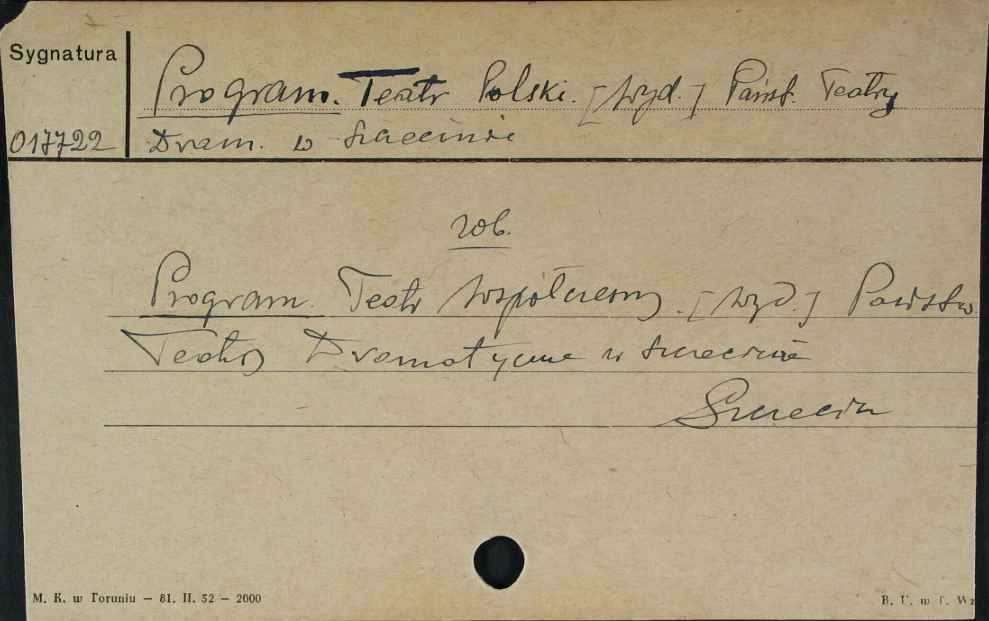 Sygnatura
Program. Teatr Polski. [Wyd.] Państ. Teatry
017722 Dram. w Szczecinie
zob.
Program. Teatr Współczesny. [Wyd.] Państw.
Teatry Dramatyczne w Szczecinie
Szczecin
M. K. w Toruniu — 81. II. 52 — 2000
B. U. w T. Wz